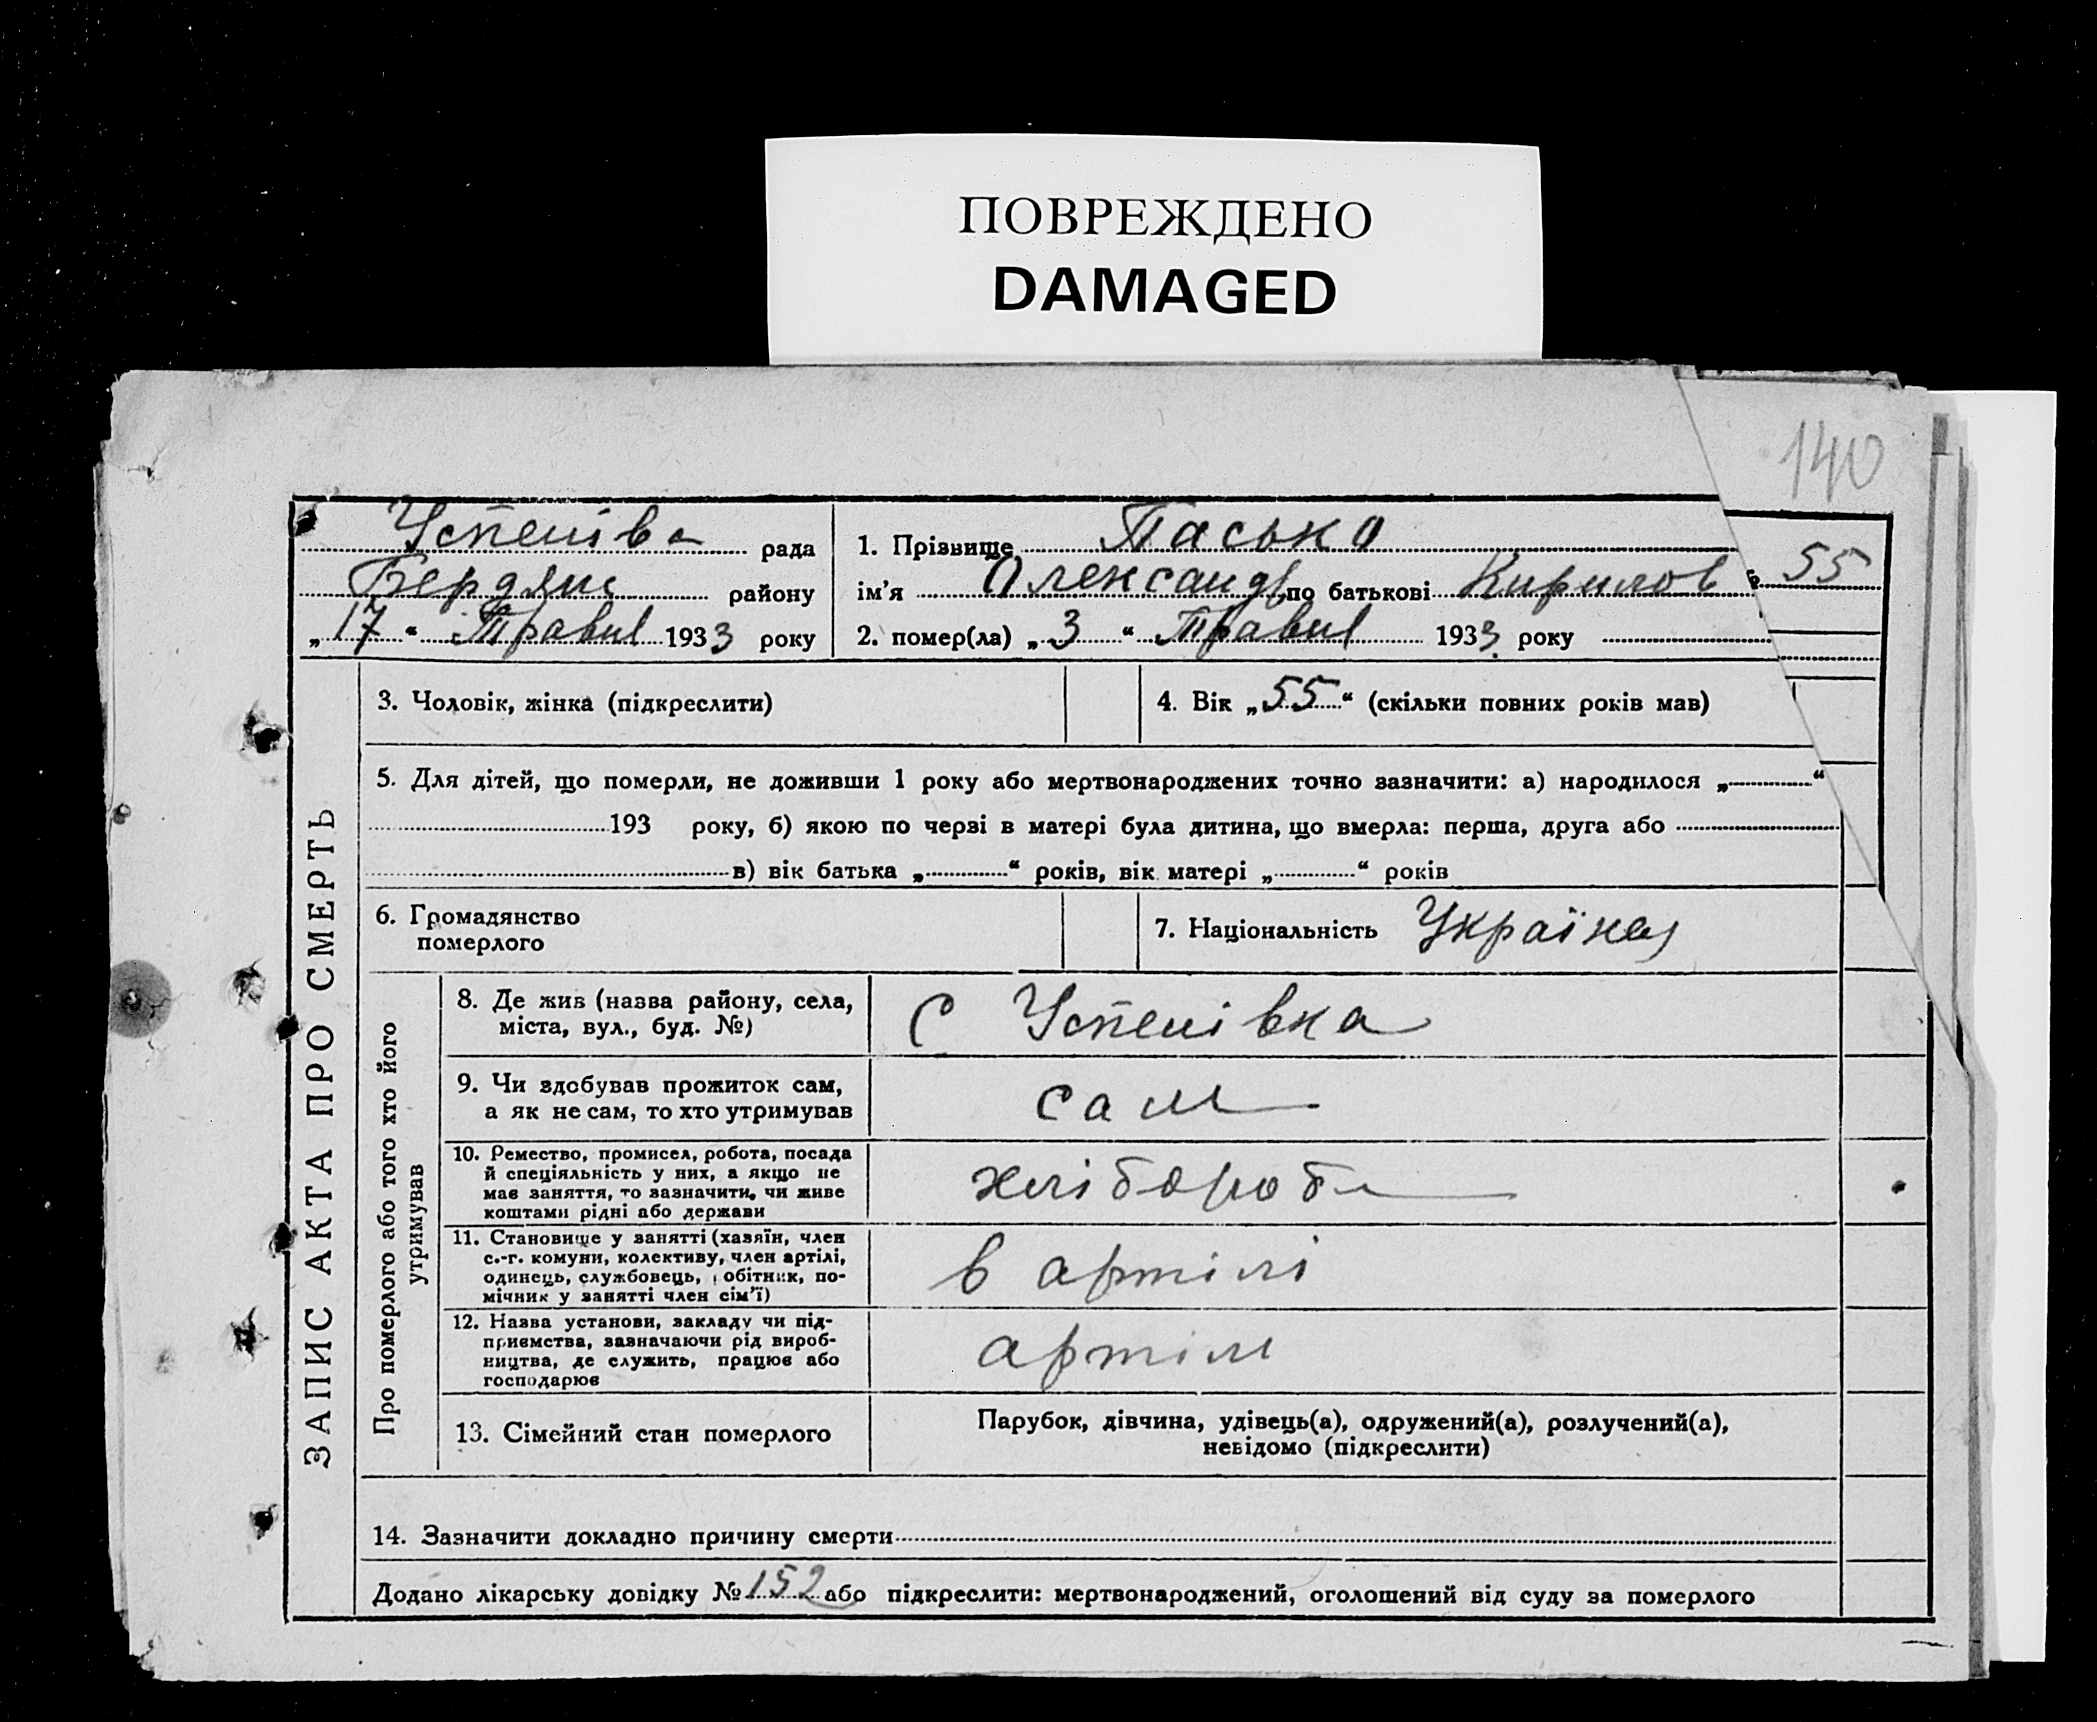 ПОВРЕЖДЕНО
DAMAGED
140
Успенівка рада
Бердянс району
„17“ Травня 1933 року
1. Прізвище Пасько
ім'я Олександр по батькові Кирилов
55
2. помер(ла) „3“ Травня 1933 року
ЗАПИС АКТА ПРО СМЕРТЬ
3. Чоловік, жінка (підкреслити)
4. Вік „55“ (скільки повних років мав)
5. Для дітей, що померли, не доживши 1 року або мертвонароджених точно зазначити: а) народилося „ “
193 року, б) якою по черзі в матері була дитина, що вмерла: перша, друга або
в) вік батька „ “ років, вік матері „ “ років
6. Громадянство
померлого
7. Національність Українец
Про померлого або того хто його
утримував
8. Де жив (назва району, села,
міста, вул., буд. №)
с Успенівка
9. Чи здобував прожиток сам,
а як не сам, то хто утримував
сам
10. Ремество, промисел, робота, посада
й спеціяльність у них, а якщо не
має заняття, то зазначити, чи живе
коштами рідні або держави
хлібороб
11. Становище у занятті (хазяїн, член
с.-г. комуни, колективу, член артілі,
одинець, службовець, обітник, по-
мічник у занятті член сім'ї)
в артілі
12. Назва установи, закладу чи під-
приємства, зазначаючи рід вироб-
ництва, де служить, працює або
господарює
артіль
13. Сімейний стан померлого
Парубок, дівчина, удівець(а), одружений(а), розлучений(а),
невідомо (підкреслити)
14. Зазначити докладно причину смерти
Додано лікарську довідку № 152 або підкреслити: мертвонароджений, оголошений від суду за померлого